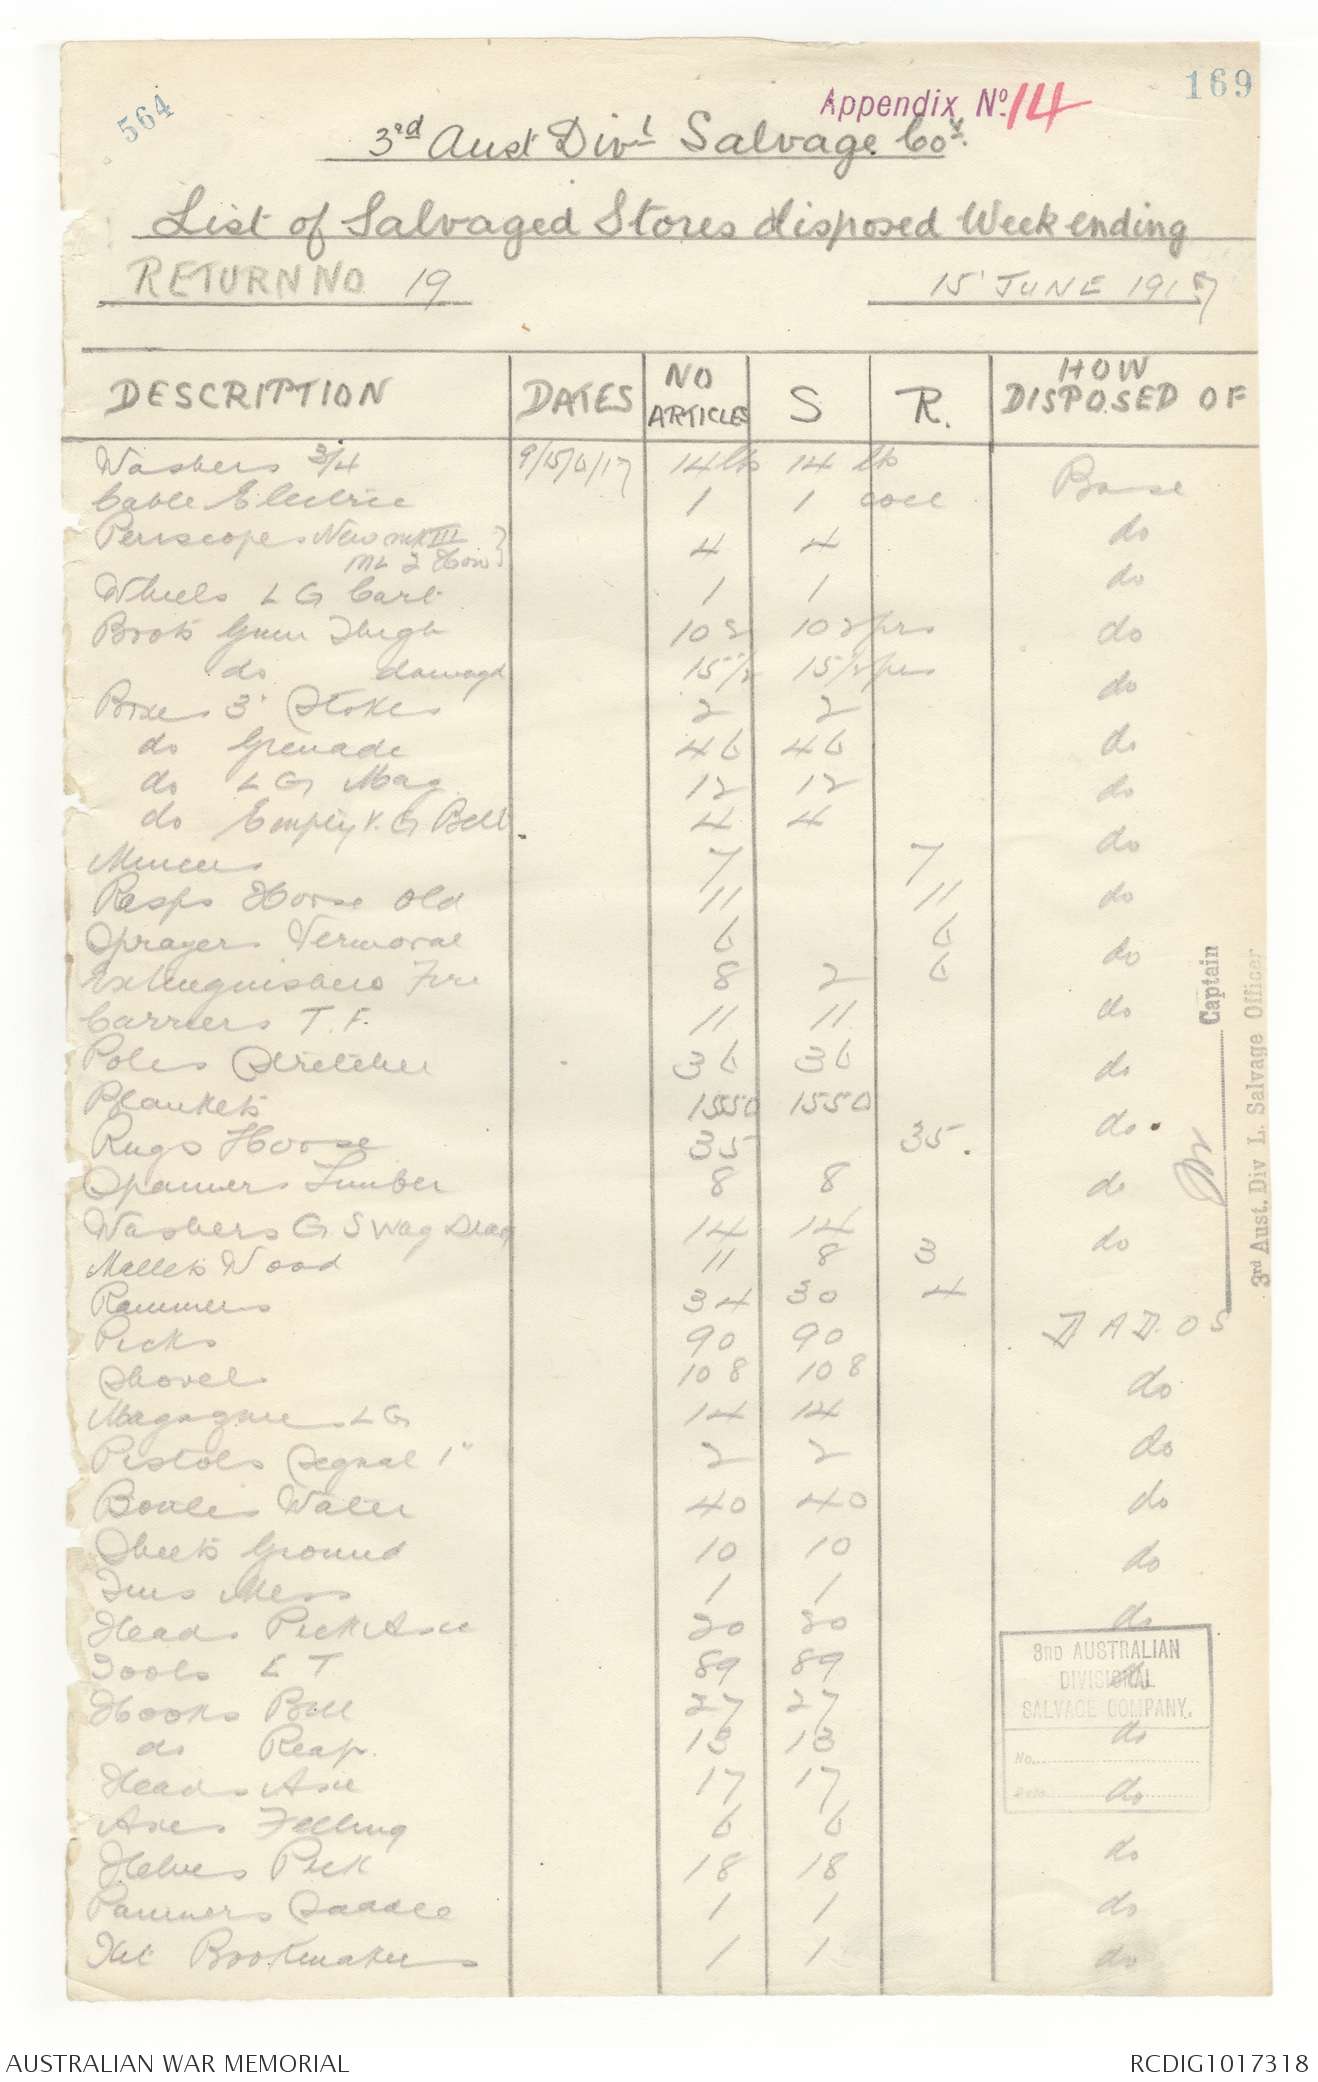 564
169
Appendix No. 14
3rd Aust Divl Salvage Coy.
List of Salvaged Stores disposed Week ending
RETURN NO 19 15 JUNE 1917
DESCRIPTION DATES NO ARTICLES S R. HOW DISPOSED OF
Washers 3/4 9/15/6/17 14 lbs 14 lbs
Cable Electric 1 1 coil Base
Periscopes New MK III
4 4 do
Wheels L G Cart 1 1 do
Boots Gum Thigh 102 102 prs do
do damagd 15 1/2 15 1/2 prs
Boxes 3" Stokes 2 2 do
do Grenade 46 46 do
do L G Mag 12 12 do
do Empty V. G Belt 4 4
Mincers 7 7 do
Resps Horse Old 11 11 do
Sprayers Vermoral 6 6
Extinguishers Fire 8 2 6 do
Carriers T. F. 11 11 do
Poles Stretcher 36 36 do
Blankets 1550 1550
Rugs Horse 35 35. do.
Spanners Limber 8 8 do
Washers G S Wag Drag 14 14
Mallets Wood 11 8 3 do
Rammers 34 30 4
Picks 90 90 D A D. O S
Shovels 108 108 do
Magazines L G 14 14
Pistols Signal 1" 2 2 do
Bottles Water 40 40 do
Sheets Ground 10 10 do
Tins Mess 1 1
Heads Pick Axe 20 20 do
Tools E T 89 89 do
Hooks Bill 27 27
do Reap. 13 13 do
Heads Axe 17 17 do
Axes Felling 6 6
Helves Pick 18 18 do
Panniers Saddle 1 1 do
Kit Bookmakers 1 1 do
Captain
3rd Aust. Div L. Salvage Officer
3RD AUSTRALIAN
DIVISIONAL
SALVAGE COMPANY.
No.
Date
AUSTRALIAN WAR MEMORIAL
RCDIG1017318